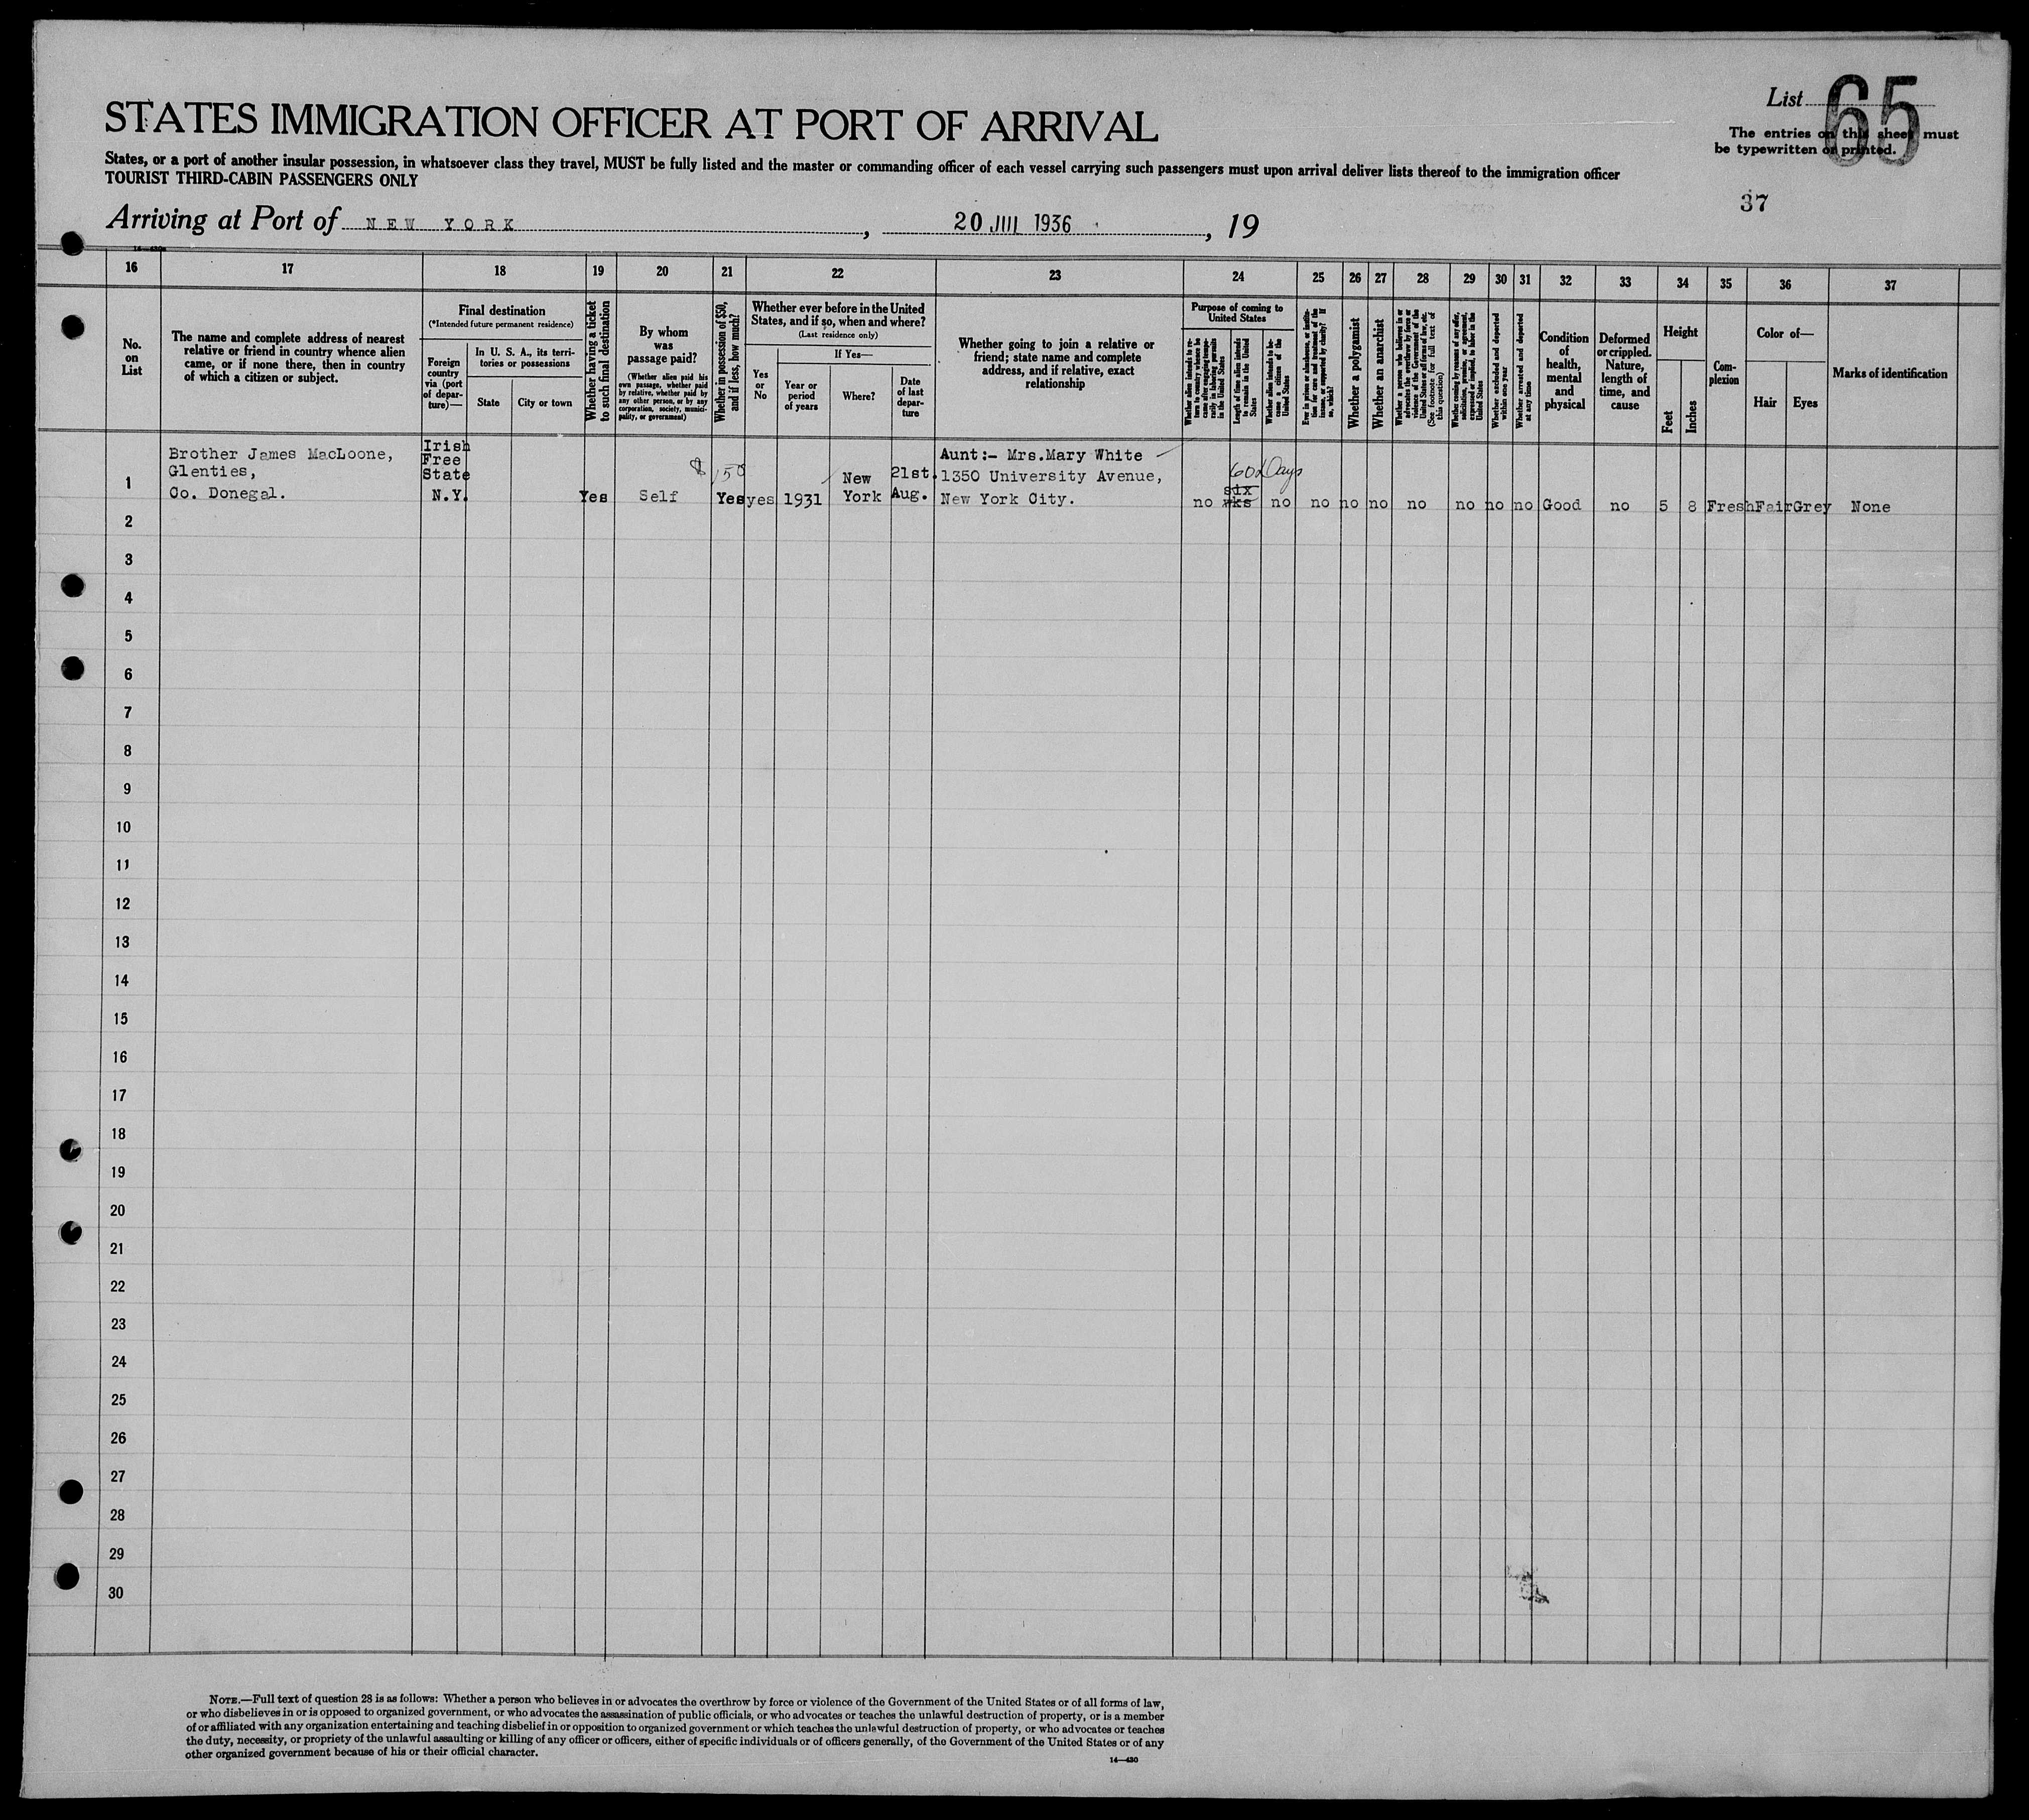 List 65
STATES IMMIGRATION OFFICER AT PORT OF ARRIVAL
The entries on this sheet must
be typewritten or printed.
States, or a port of another insular possession, in whatsoever class they travel, MUST be fully listed and the master or commanding officer of each vessel carrying such passengers must upon arrival deliver lists thereof to the immigration officer
TOURIST THIRD-CABIN PASSENGERS ONLY
37
Arriving at Port of NEW YORK, 20 JUL 1936, 19
14—430
16 17 18 19 20 21 22 23 24 25 26 27 28 29 30 31 32 33 34 35 36 37
No.
on
List
The name and complete address of nearest
relative or friend in country whence alien
came, or if none there, then in country
of which a citizen or subject.
Final destination
(*Intended future permanent residence)
Foreign
country
via (port
of depar-
ture)—
In U. S. A., its terri-
tories or possessions
State
City or town
Whether having a ticket
to such final destination
By whom
was
passage paid?
(Whether alien paid his
own passage, whether paid
by relative, whether paid by
any other person, or by any
corporation, society, munici-
pality, or government)
Whether in possession of $50,
and if less, how much?
Whether ever before in the United
States, and if so, when and where?
(Last residence only)
Yes
or
No
If Yes—
Year or
period
of years
Where?
Date
of last
depar-
ture
Whether going to join a relative or
friend; state name and complete
address, and if relative, exact
relationship
Purpose of coming to
United States
Whether alien intends to re-
turn to country whence he
came after engaging tempo-
rarily in laboring pursuits
in the United States
Length of time alien intends
to remain in the United
States
Whether alien intends to be-
come a citizen of the
United States
Ever in prison or almshouse, or institu-
tion for care and treatment of the
insane, or supported by charity? If
so, which?
Whether a polygamist
Whether an anarchist
Whether a person who believes in or
advocates the overthrow by force or
violence of the Government of the
United States or all forms of law, etc.
(See footnote for full text of
this question)
Whether coming by reason of any offer,
solicitation, promise, or agreement,
expressed or implied, to labor in the
United States
Whether excluded and deported
within one year
Whether arrested and deported
at any time
Condition
of
health,
mental
and
physical
Deformed
or crippled.
Nature,
length of
time, and
cause
Height
Feet
Inches
Com-
plexion
Color of—
Hair
Eyes
Marks of identification
1
Brother James MacLoone,
Glenties,
Co. Donegal.
Irish
Free
State
N.Y.
Yes
Self
$ 150
Yes
yes
1931
New
York
21st.
Aug.
Aunt:- Mrs.Mary White
1350 University Avenue,
New York City.
no
60 Days
six
wks
no no no no no no no no Good no 5 8 Fresh Fair Grey None
2
3
4
5
6
7
8
9
10
11
12
13
14
15
16
17
18
19
20
21
22
23
24
25
26
27
28
29
30
NOTE.—Full text of question 28 is as follows: Whether a person who believes in or advocates the overthrow by force or violence of the Government of the United States or of all forms of law,
or who disbelieves in or is opposed to organized government, or who advocates the assassination of public officials, or who advocates or teaches the unlawful destruction of property, or is a member
of or affiliated with any organization entertaining and teaching disbelief in or opposition to organized government or which teaches the unlawful destruction of property, or who advocates or teaches
the duty, necessity, or propriety of the unlawful assaulting or killing of any officer or officers, either of specific individuals or of officers generally, of the Government of the United States or of any
other organized government because of his or their official character.
14—430